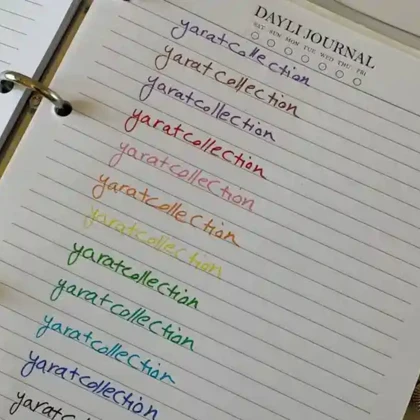 DAYLI JOURNAL
SAT SUN MON TUE WED THU FRI
yaratcollection
yaratcollection
yaratcollection
yaratcollection
yaratcollection
yaratcollection
yaratcollection
yaratcollection
yaratcollection
yaratcollection
yaratcollection
yaratc